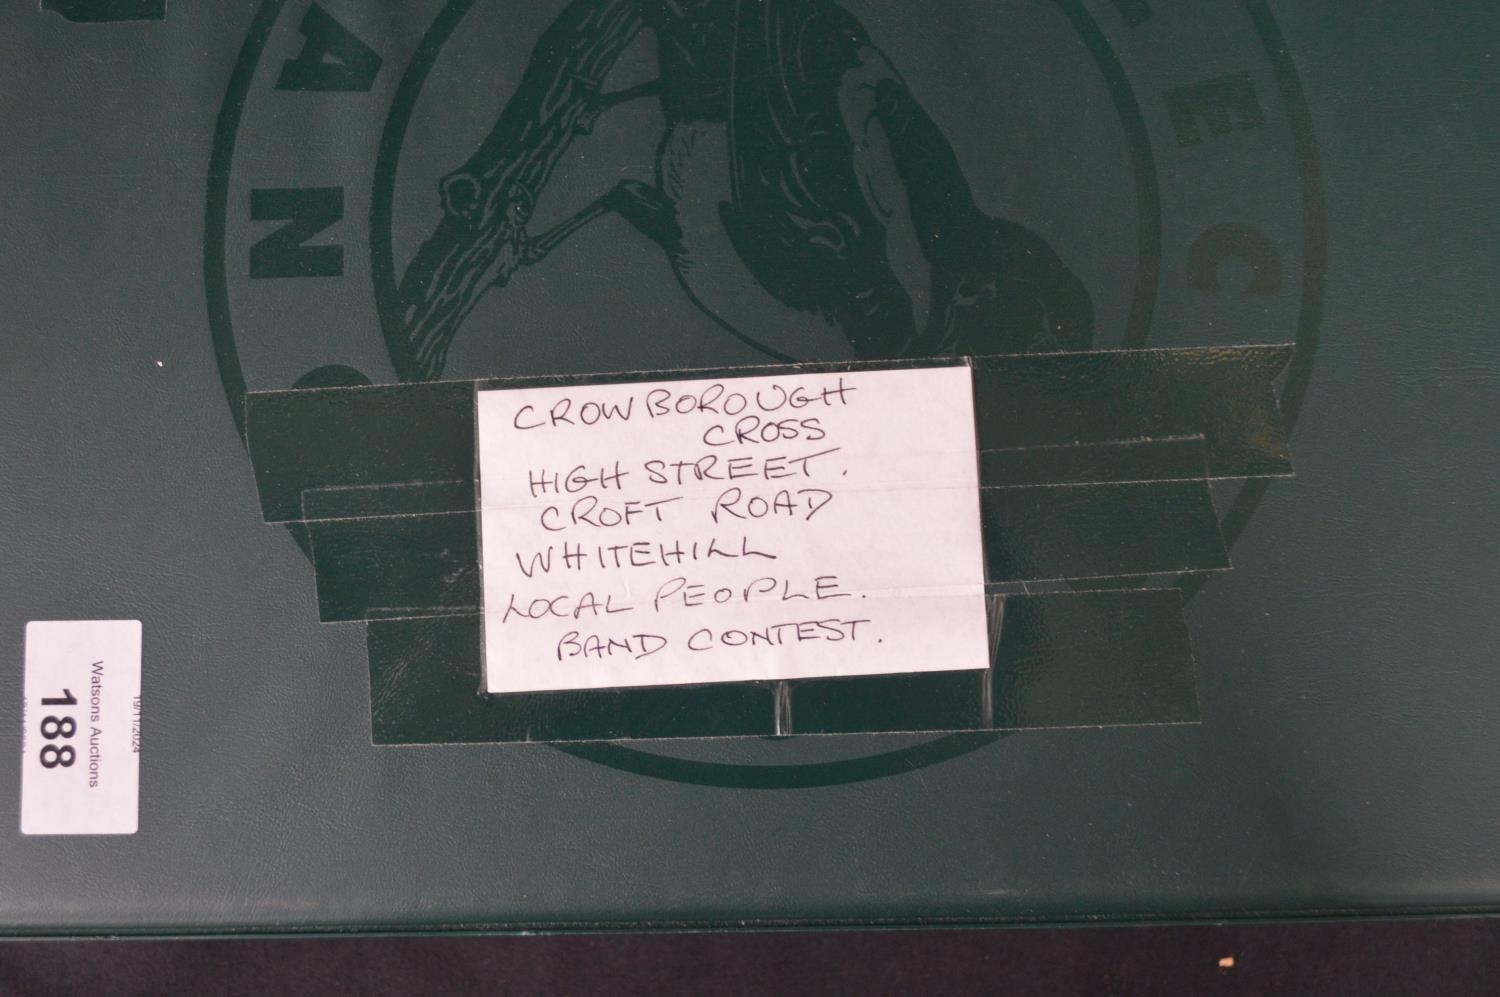 CROWBOROUGH
CROSS
HIGH STREET.
CROFT ROAD
WHITEHILL
LOCAL PEOPLE.
BAND CONTEST.
19/11/2024
Watsons Auctions
188